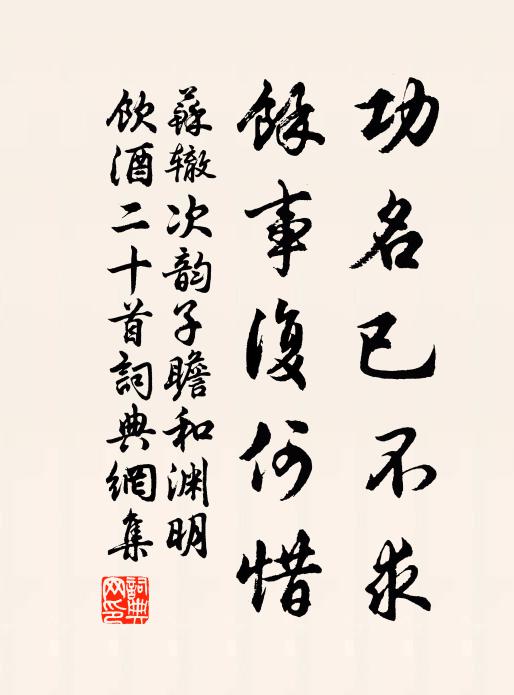 功名已不求
餘事復何惜
蘇辙次韵子瞻和渊明
飲酒二十首詞典網集
詞典
网印